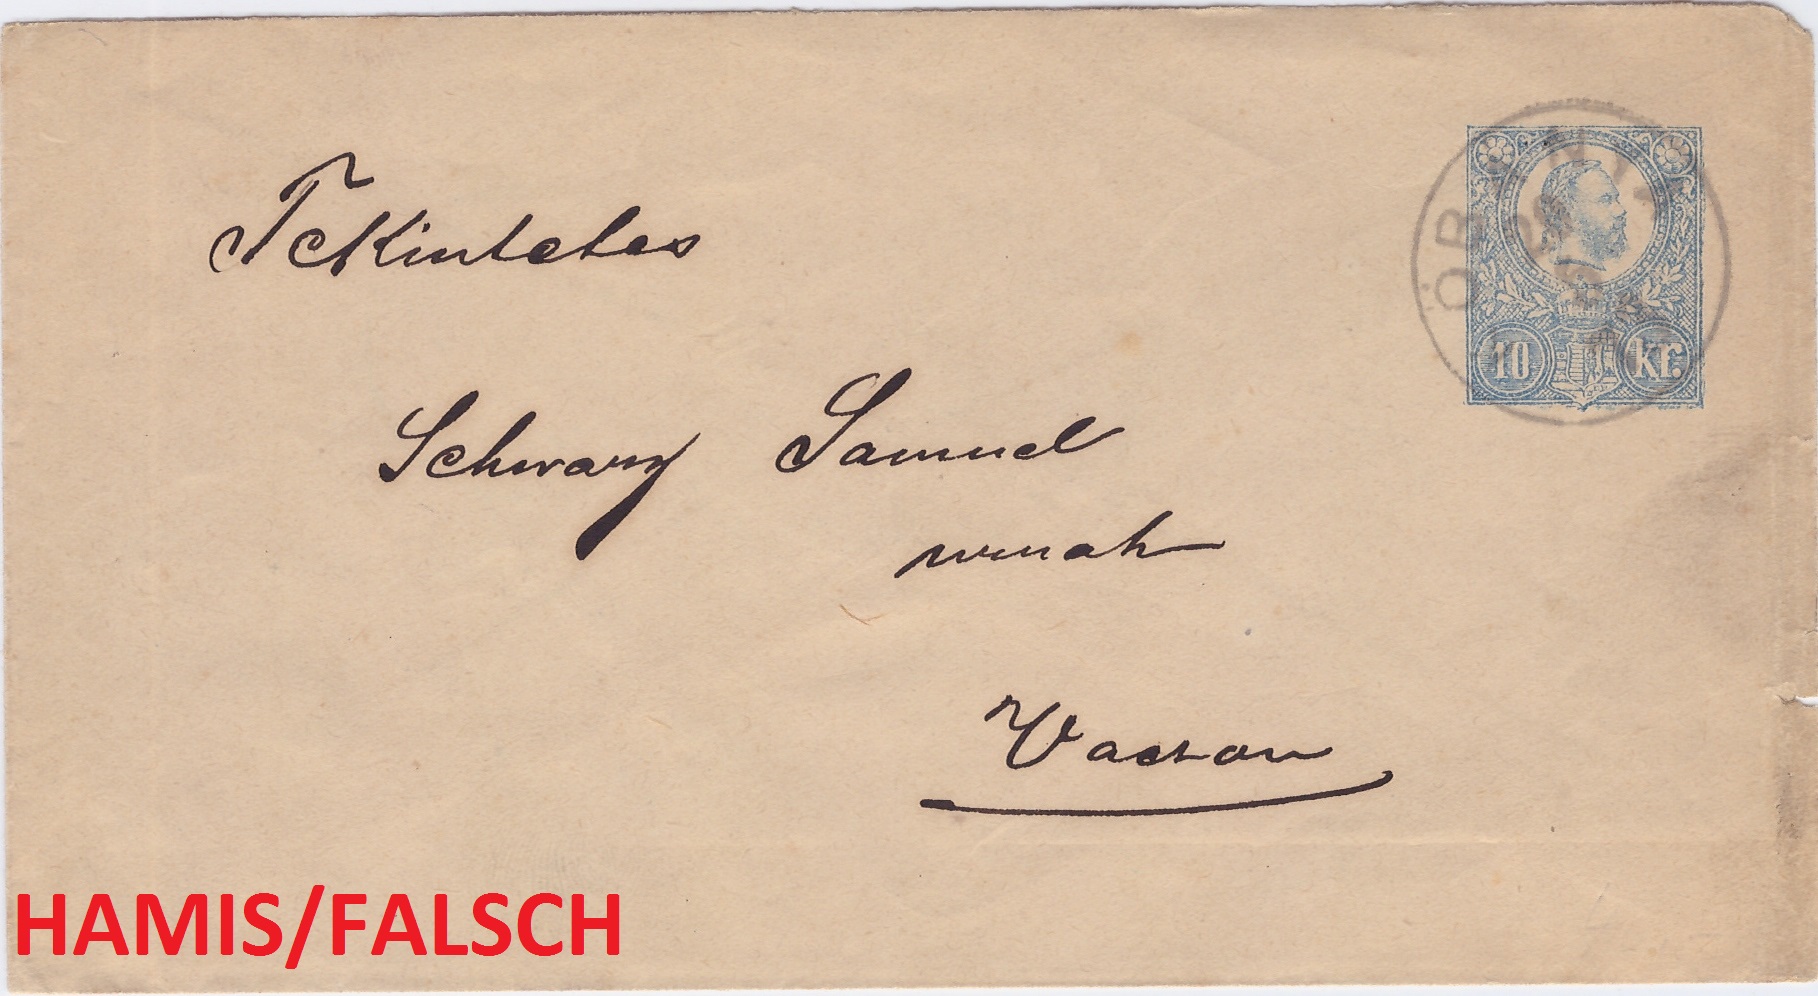 Tekintetes
ÓBÁNYA
10 kr.
Schwarz Samuel
urnak
Vacson
HAMIS/FALSCH